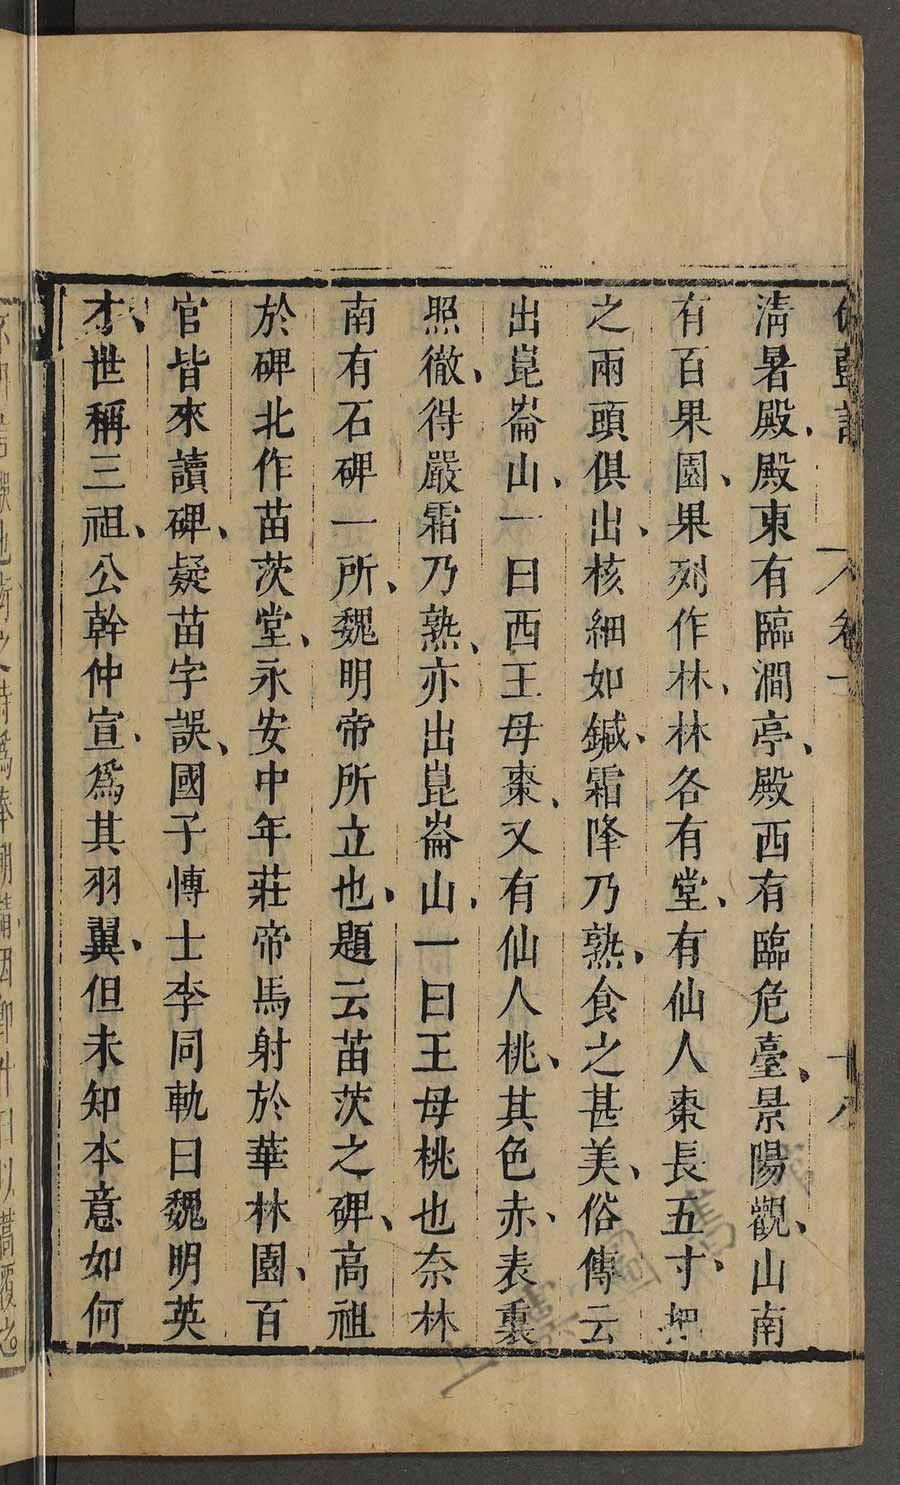 伽藍記 卷一 十八
清暑殿、殿東有臨澗亭、殿西有臨危臺、景陽觀、山南
有百果園、果列作林、林各有堂、有仙人棗長五寸、把
之兩頭俱出、核細如鍼、霜降乃熟、食之甚美、俗傳云
出崑崙山、一曰西王母棗、又有仙人桃、其色赤、表裏
照徹、得嚴霜乃熟、亦出崑崙山、一曰王母桃也奈林
南有石碑一所、魏明帝所立也、題云苗茨之碑、高祖
於碑北作苗茨堂、永安中年莊帝馬射於華林園、百
官皆來讀碑、疑苗字誤、國子博士李同軌曰魏明英
才、世稱三祖、公幹仲宣、爲其羽翼、但未知本意如何